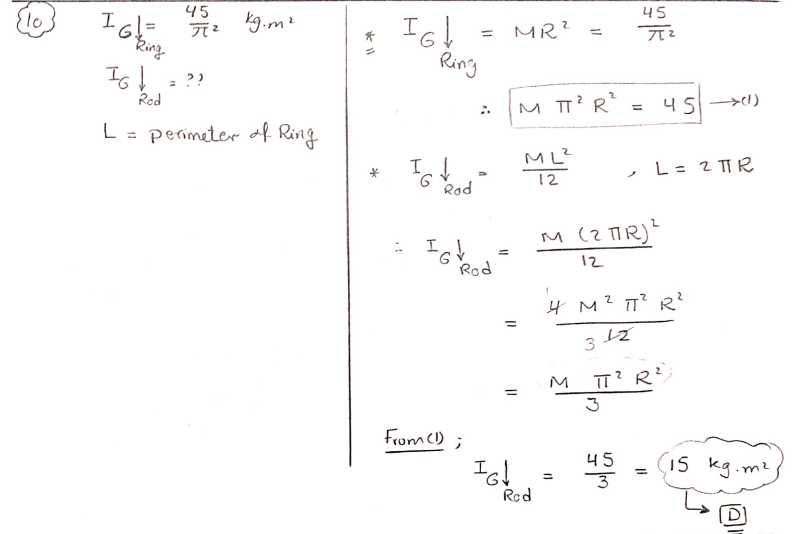 10
I_G↓Ring = 45/π² kg.m²
I_G↓Rod = ??
L = perimeter of Ring
* I_G↓Ring = MR² = 45/π²
∴ M π² R² = 45 → (1)
* I_G↓Rod = ML²/12 , L = 2πR
∴ I_G↓Rod = M (2πR)²/12
= 4 M² π² R²/12 1 3
= M π² R²/3
From (1) ;
I_G↓Rod = 45/3 = 15 kg.m²
↳ D